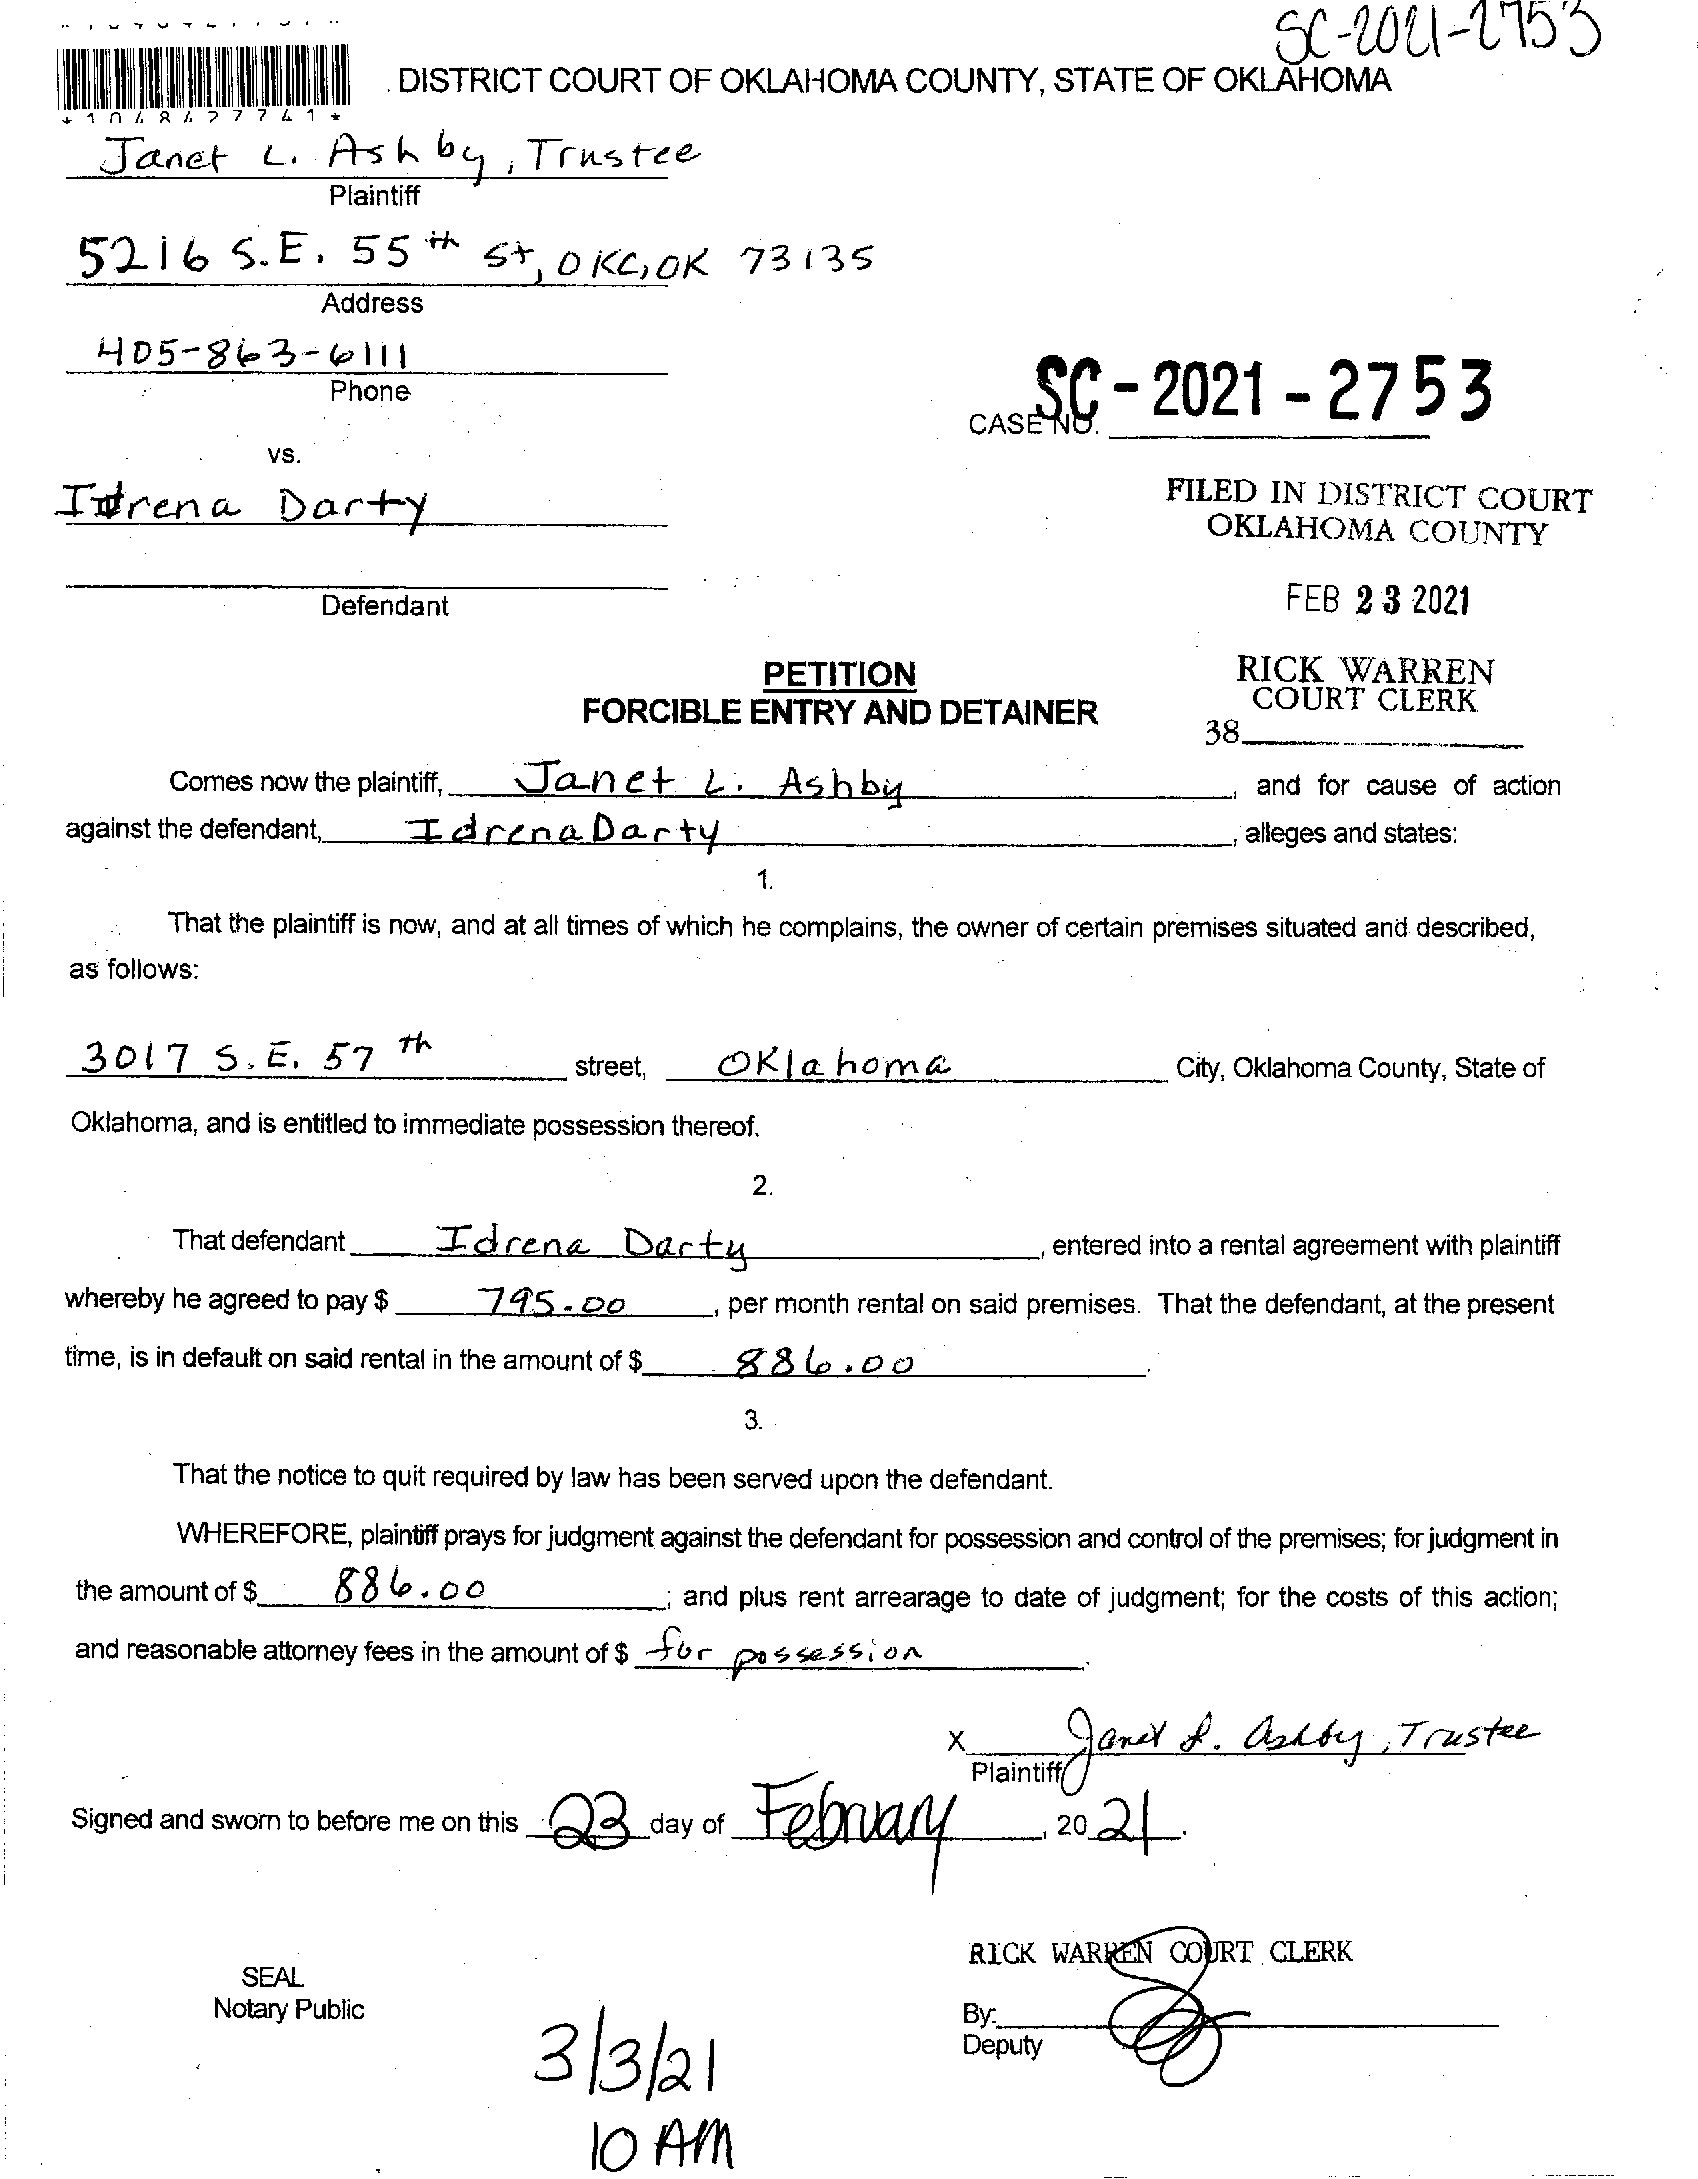 SC-2021-2753
DISTRICT COURT OF OKLAHOMA COUNTY, STATE OF OKLAHOMA
*1048427741*
Janet L. Ashby, Trustee
Plaintiff
5216 S.E. 55th St, OKC, OK 73135
Address
405-863-6111
Phone
CASE NO. SC-2021-2753
vs.
Idrena Darty
FILED IN DISTRICT COURT
OKLAHOMA COUNTY
Defendant
FEB 23 2021
PETITION
FORCIBLE ENTRY AND DETAINER
RICK WARREN
COURT CLERK
38
Comes now the plaintiff, Janet L. Ashby, and for cause of action
against the defendant, Idrena Darty, alleges and states:
1.
That the plaintiff is now, and at all times of which he complains, the owner of certain premises situated and described,
as follows:
3017 S.E. 57th street, Oklahoma City, Oklahoma County, State of
Oklahoma, and is entitled to immediate possession thereof.
2.
That defendant Idrena Darty, entered into a rental agreement with plaintiff
whereby he agreed to pay $ 795.00, per month rental on said premises. That the defendant, at the present
time, is in default on said rental in the amount of $ 886.00.
3.
That the notice to quit required by law has been served upon the defendant.
WHEREFORE, plaintiff prays for judgment against the defendant for possession and control of the premises; for judgment in
the amount of $ 886.00; and plus rent arrearage to date of judgment; for the costs of this action;
and reasonable attorney fees in the amount of $ for possession.
X Janet L. Ashby, Trustee
Plaintiff
Signed and sworn to before me on this 23 day of February, 2021.
RICK WARREN COURT CLERK
SEAL
Notary Public
By:
Deputy
3/3/21
10 AM